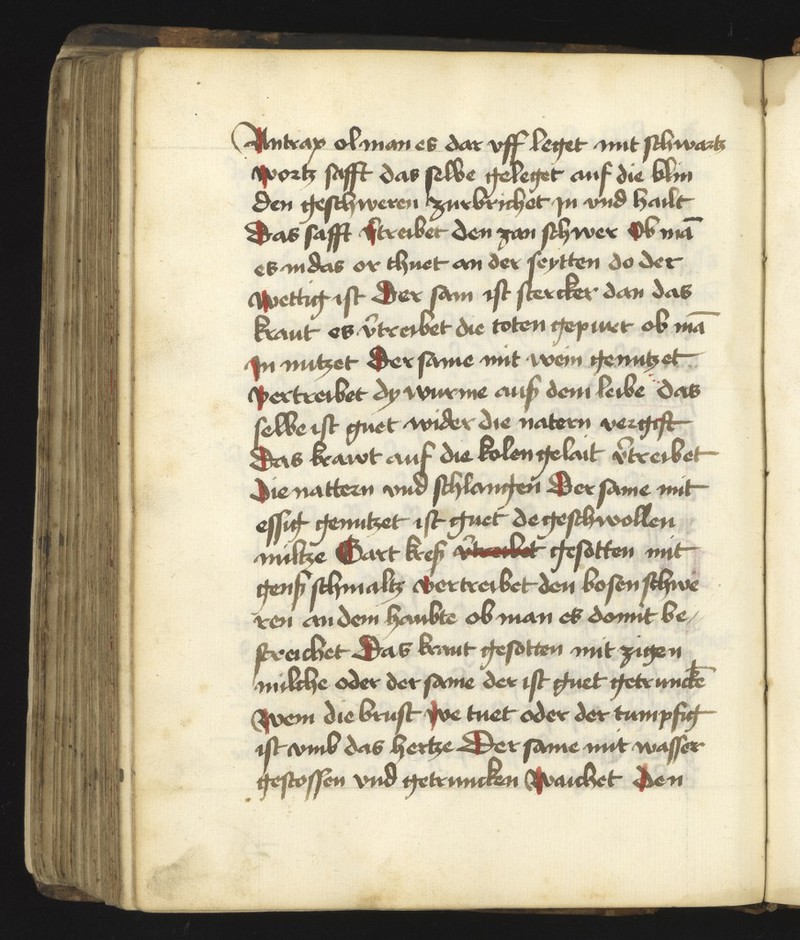 Antrax ol man es dar vff leget mit schwartz
wortz safft das selbe geleget auf die blin
den geschweren zurbrichet jn vnd hailt
Das safft v̄treibet den zan schwer Ob mā
es in das or thuet an der seytten do der
wettig ist Der sam ist stercker dan das
kraut es v̄treibet die toten gepurt ob mā
jn nutzet Der same mit wein genutzet
vertreibet dy wurme auß dem leibe das
selbe ist guet wider die natern vergift
Das krawt auf die kolen gelait v̄treibet
die nattern vnd schlangen Der same mit
essig genutzet ist guet de geschwollen
miltze Gart kreß v̄treibet gesotten mit
genß schmaltz vertreibet den bosen schwe
ren an dem haubte ob man es domit be/
streichet Das kraut gesotten mit zigen
milche oder der same der ist guet getrunckē
Wem die brust we tuet oder der tumpfig
ist vmb das hertze Der same mit wasser
gestossen vnd getruncken Waichet Den